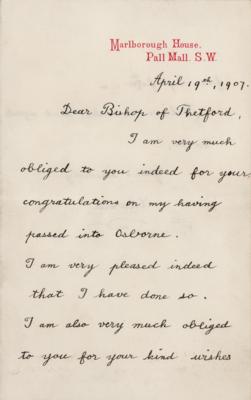 Marlborough House,
Pall Mall. S.W.
April 19th, 1907.
Dear Bishop of Thetford,
I am very much
obliged to you indeed for your
congratulations on my having
passed into Osborne.
I am very pleased indeed
that I have done so.
I am also very much obliged
to you for your kind wishes